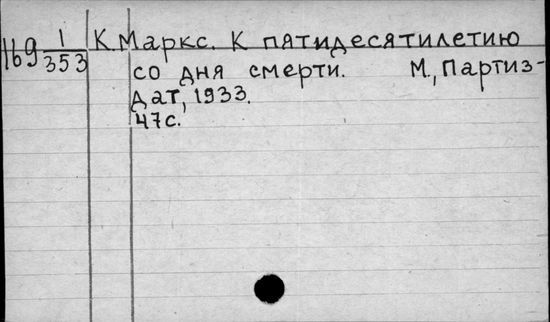 169 1/353 К. Маркс. К пятидесятилетию
со дня смерти. М., Партиз-
дат, 1933.
47с.